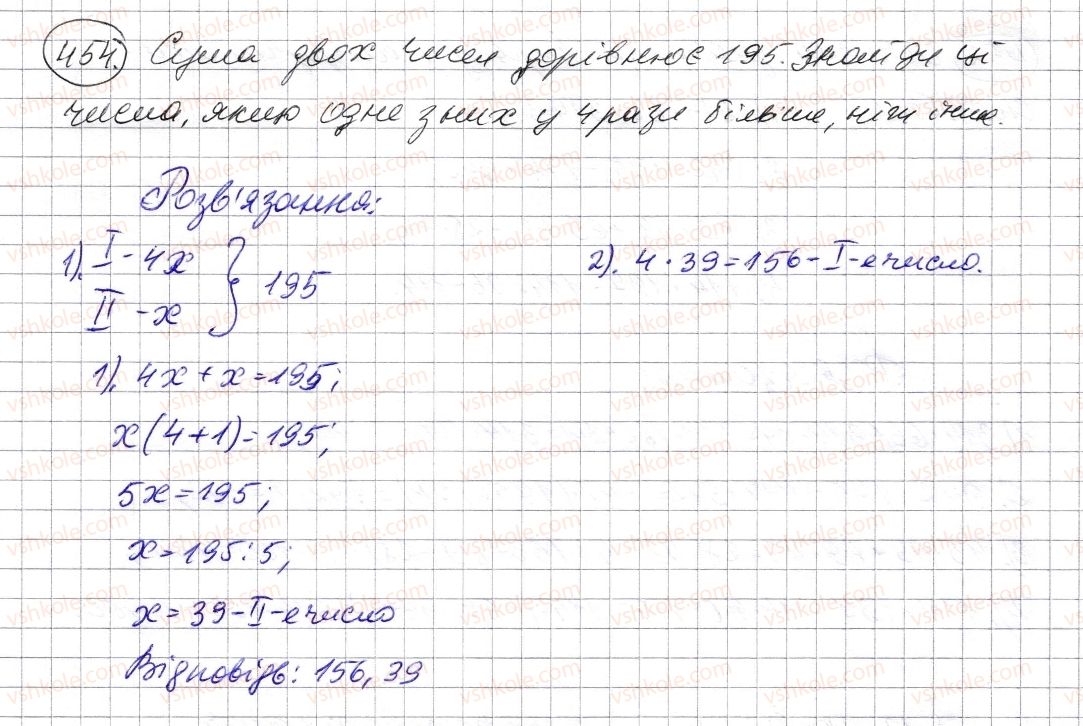 454. Сума двох чисел дорівнює 195. Знайди ці
числа, якщо одне з них у 4 рази більше, ніж інше.
Розв'язання:
1). I - 4x
II - x } 195
1). 4x + x = 195;
x(4+1) = 195;
5x = 195;
x = 195 : 5;
x = 39 - II-е число
Відповідь: 156, 39
2). 4 · 39 = 156 - I-е число.
vshkole.com